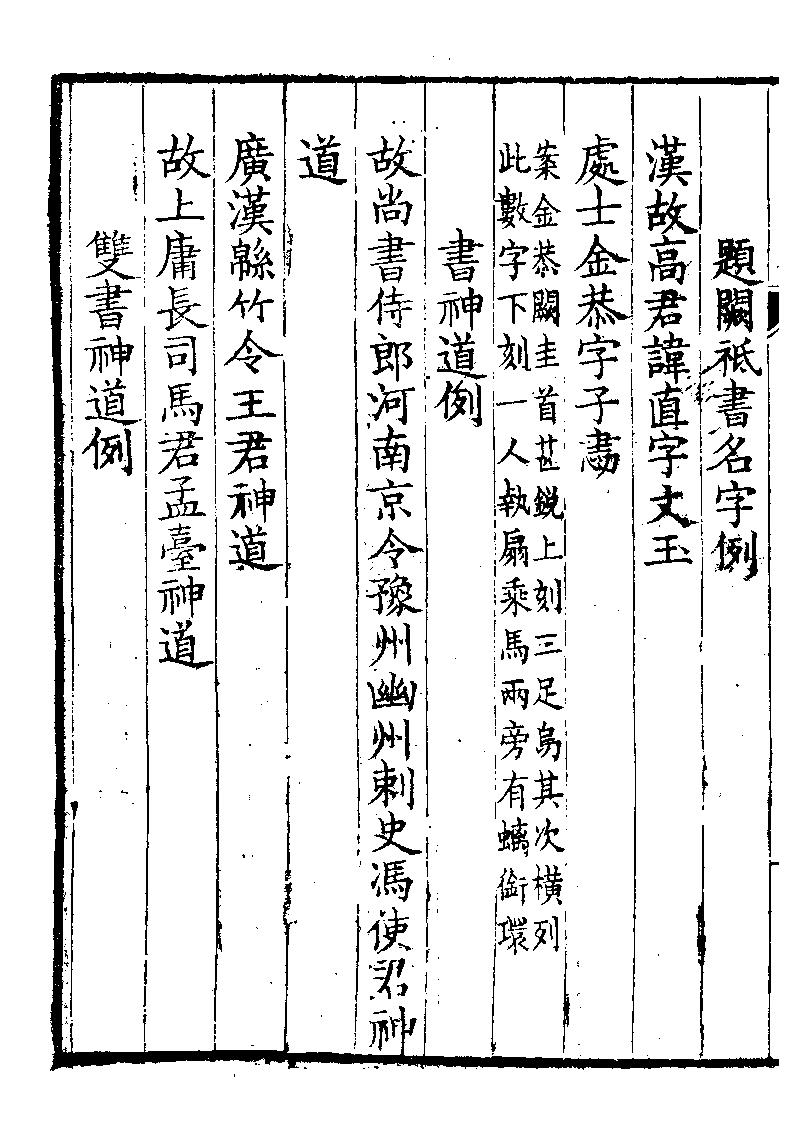 題闕祇書名字例
漢故高君諱直字文玉
處士金恭字子肅
案金恭闕圭首甚鋭上刻三足烏其次橫列
此數字下刻一人執扇乘馬兩旁有螭銜環
書神道例
故尚書侍郎河南京令豫州幽州刺史馮使君神
道
廣漢緜竹令王君神道
故上庸長司馬君孟臺神道
雙書神道例